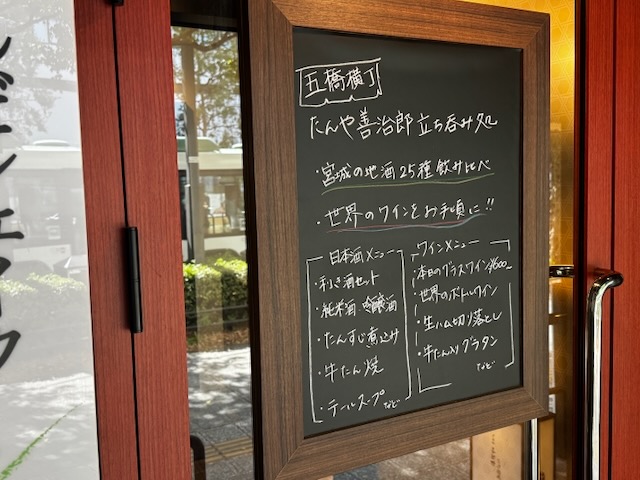 五橋横丁
たんや善治郎 立ち呑み処
・宮城の地酒25種 飲み比べ
・世界のワインをお手頃に!!
日本酒メニュー
・利き酒セット
・純米酒・吟醸酒
・たんすじ煮込み
・牛たん焼
・テールスープ
など
ワインメニュー
・本日のグラスワイン ¥600~
・世界のボトルワイン
・生ハム切り落とし
・牛たん入りグラタン
など